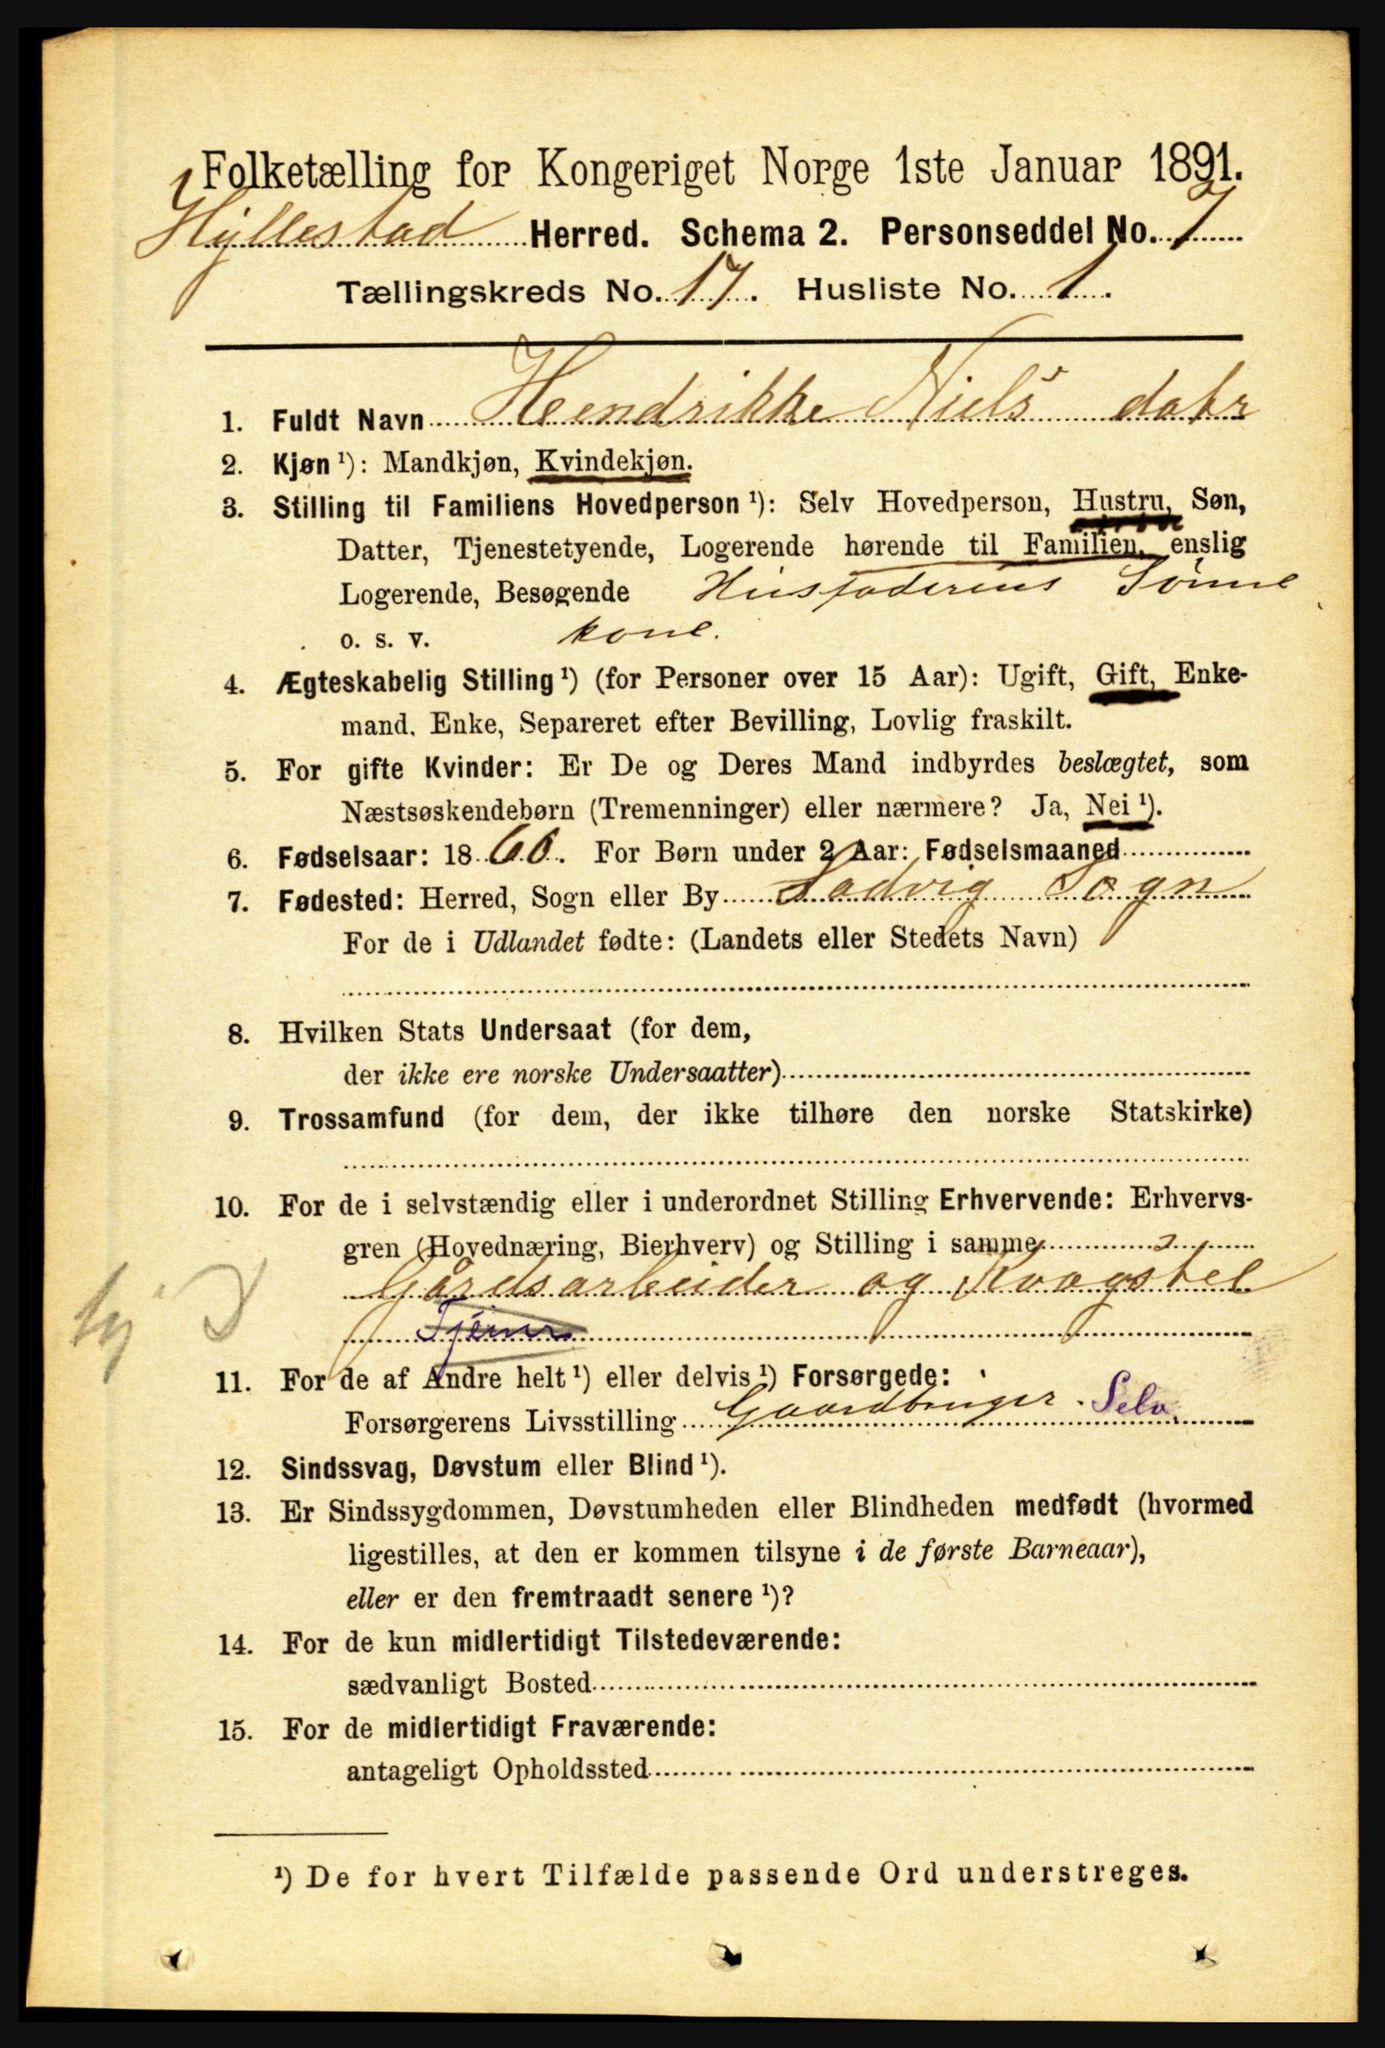 Folketælling for Kongeriget Norge 1ste Januar 1891.
Hyllestad Herred. Schema 2. Personseddel No. 7
Tællingskreds No. 17. Husliste No. 1.
1. Fuldt Navn Hendrikke Niels datr
2. Kjøn ¹): Mandkjøn, Kvindekjøn.
3. Stilling til Familiens Hovedperson ¹): Selv Hovedperson, Hustru, Søn,
Datter, Tjenestetyende, Logerende hørende til Familien, enslig
Logerende, Besøgende Husfaderens Sønne
o. s. v. kone.
4. Ægteskabelig Stilling ¹) (for Personer over 15 Aar): Ugift, Gift, Enke-
mand, Enke, Separeret efter Bevilling, Lovlig fraskilt.
5. For gifte Kvinder: Er De og Deres Mand indbyrdes beslægtet, som
Næstsøskendebørn (Tremenninger) eller nærmere? Ja, Nei ¹).
6. Fødselsaar: 1860. For Børn under 2 Aar: Fødselsmaaned
7. Fødested: Herred, Sogn eller By Ladvig Sogn
For de i Udlandet fødte: (Landets eller Stedets Navn)
8. Hvilken Stats Undersaat (for dem,
der ikke ere norske Undersaatter)
9. Trossamfund (for dem, der ikke tilhøre den norske Statskirke)
10. For de i selvstændig eller i underordnet Stilling Erhvervende: Erhvervs-
gren (Hovednæring, Bierhverv) og Stilling i samme
Gårdsarbeider og
11. For de af Andre helt ¹) eller delvis ¹) Forsørgede:
Forsørgerens Livsstilling Gaardbruger. Selv.
12. Sindssvag, Døvstum eller Blind ¹).
13. Er Sindssygdommen, Døvstumheden eller Blindheden medfødt (hvormed
ligestilles, at den er kommen tilsyne i de første Barneaar),
eller er den fremtraadt senere ¹)?
14. For de kun midlertidigt Tilstedeværende:
sædvanligt Bosted
15. For de midlertidigt Fraværende:
antageligt Opholdssted
¹) De for hvert Tilfælde passende Ord understreges.